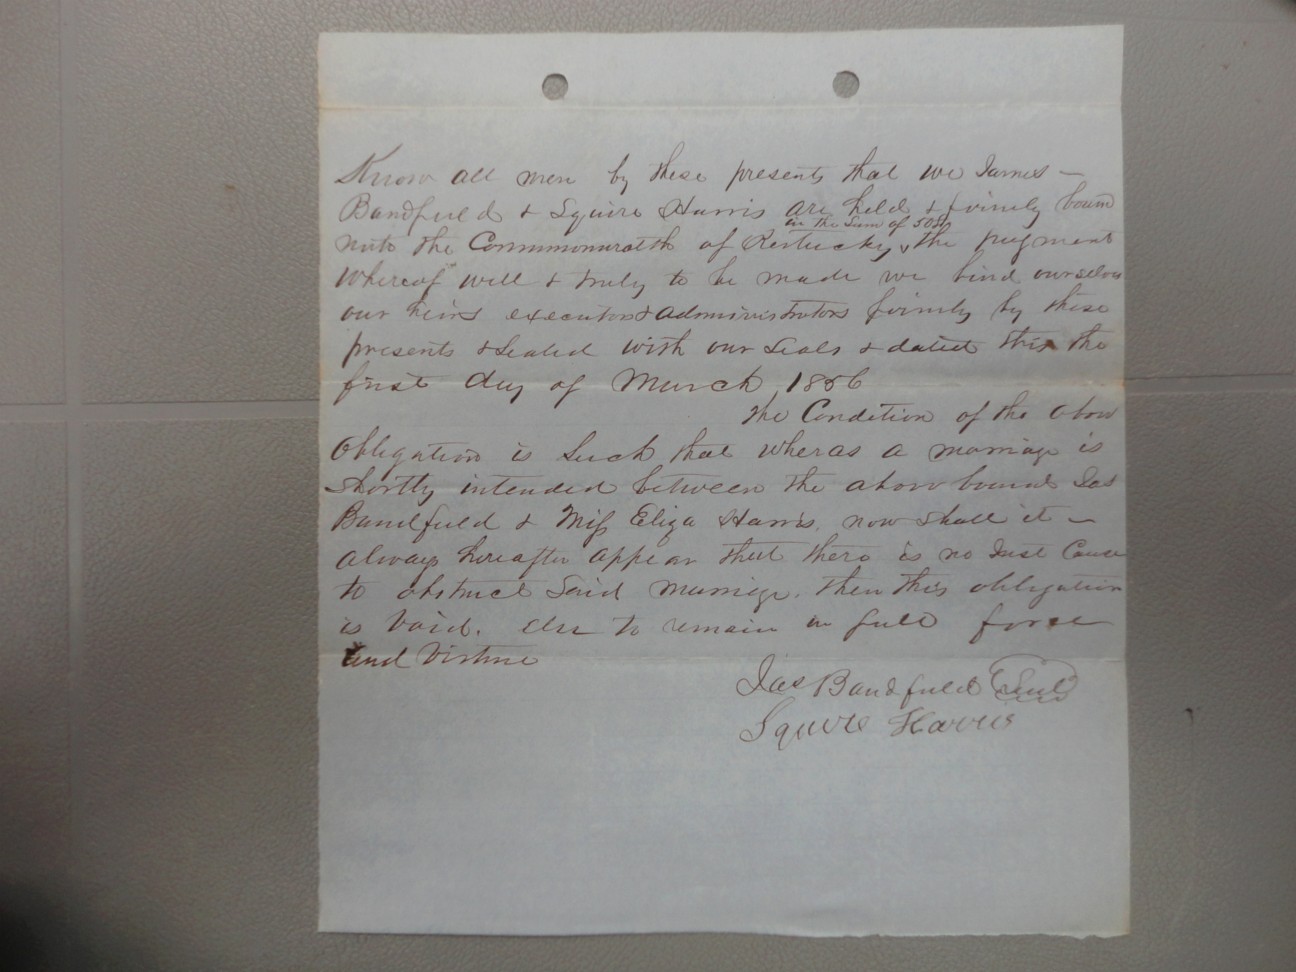 Know all men by these presents that we James –
Bandfield & Squire Harris are held & firmly boun
in the Sum of 50$
unto the Commonwealth of Kentucky, the payment
whereof well & truly to be made we bind ourselves
our heirs executors & administrators firmly by these
presents & Sealed with our Seals & dated this the
first day of March 1856
The Condition of the above
obligation is Such that wheras a marriage is
shortly intended between the above bound Jas
Bandfield & Miss Eliza Harris, now shall it –
always hereafter appear that there is no Just Cause
to obstruct Said marriage, then this obligation
is void. else to remain in full force
and virtue
Jas Bandfield Seal
Squire Harris